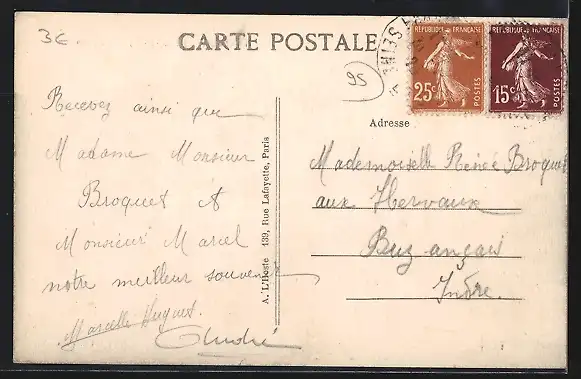 3€
CARTE POSTALE
95
REPUBLIQUE FRANÇAISE
25c
POSTES
REPUBLIQUE FRANÇAISE
15c
POSTES
Adresse
Recevez ainsi que
Madame Monsieur
Broquet et
Monsieur Marcel
notre meilleur souvenir
Marcelle Huguet.
André
A. L'Hoste 139, Rue Lafayette, Paris
Mademoiselle Renée Broquet
aux Hervaux
Buzançais
Indre.